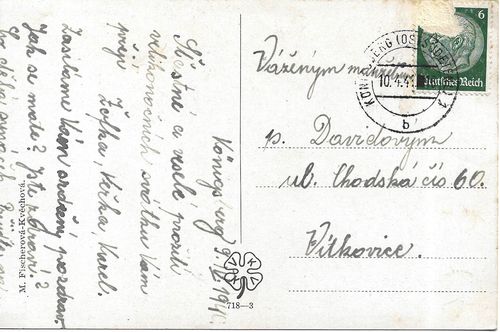 Königsberg 9. IV. 1941
Šťastné a veselé prožití
velikonočních svátků Vám
přejí
Žofka, Verka, Karel.
Zasíláme Vám srdečný pozdrav.
Jak se máte? Jste zdraví?
M. Fischerová-Kvěchová.
718—3
KÖNIGSBERG (OST
10.4.4
b
6
Deutsches Reich
Váženým
p. Davidovým
ul. Chodská čís 60.
Vítkovice.